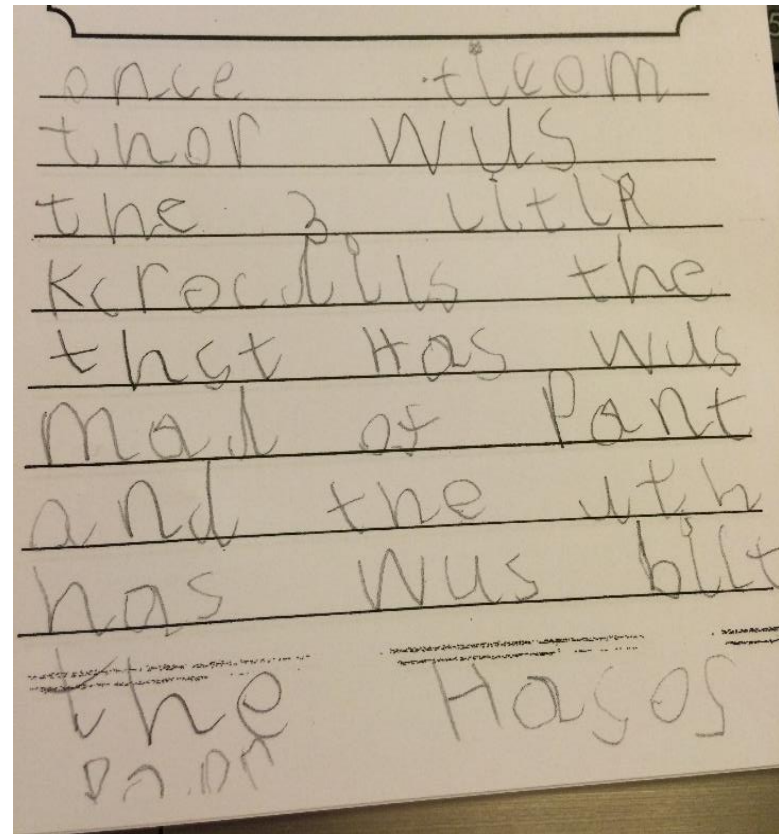 once ticom
thor wus
the 3 litlR
Kcrocdills the
thst Has wus
Mad of Pant
and the uth
has wus bilt
the Hasos